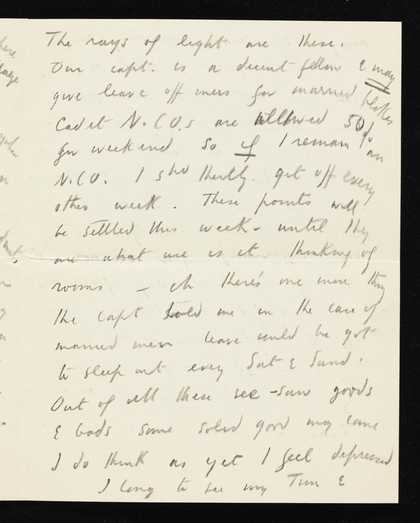 The rays of light are these.
Our capt. is a decent fellow & may
give leave off mess for married blokes
Cadet N.C.O.s are allowed 50%
for weekend. So if I remain an
N.C.O. I shd thertly. get off every
other week. These points will
be settled this week - until they
are what use is it thinking of
rooms - oh there's one more thing
The capt told me in the case of
married men leave could be got
to sleep out every Sat & Sund.
Out of all these see-saw goods
& bads some solid good may come
I do think as yet I feel depressed
I long to see my Tim &